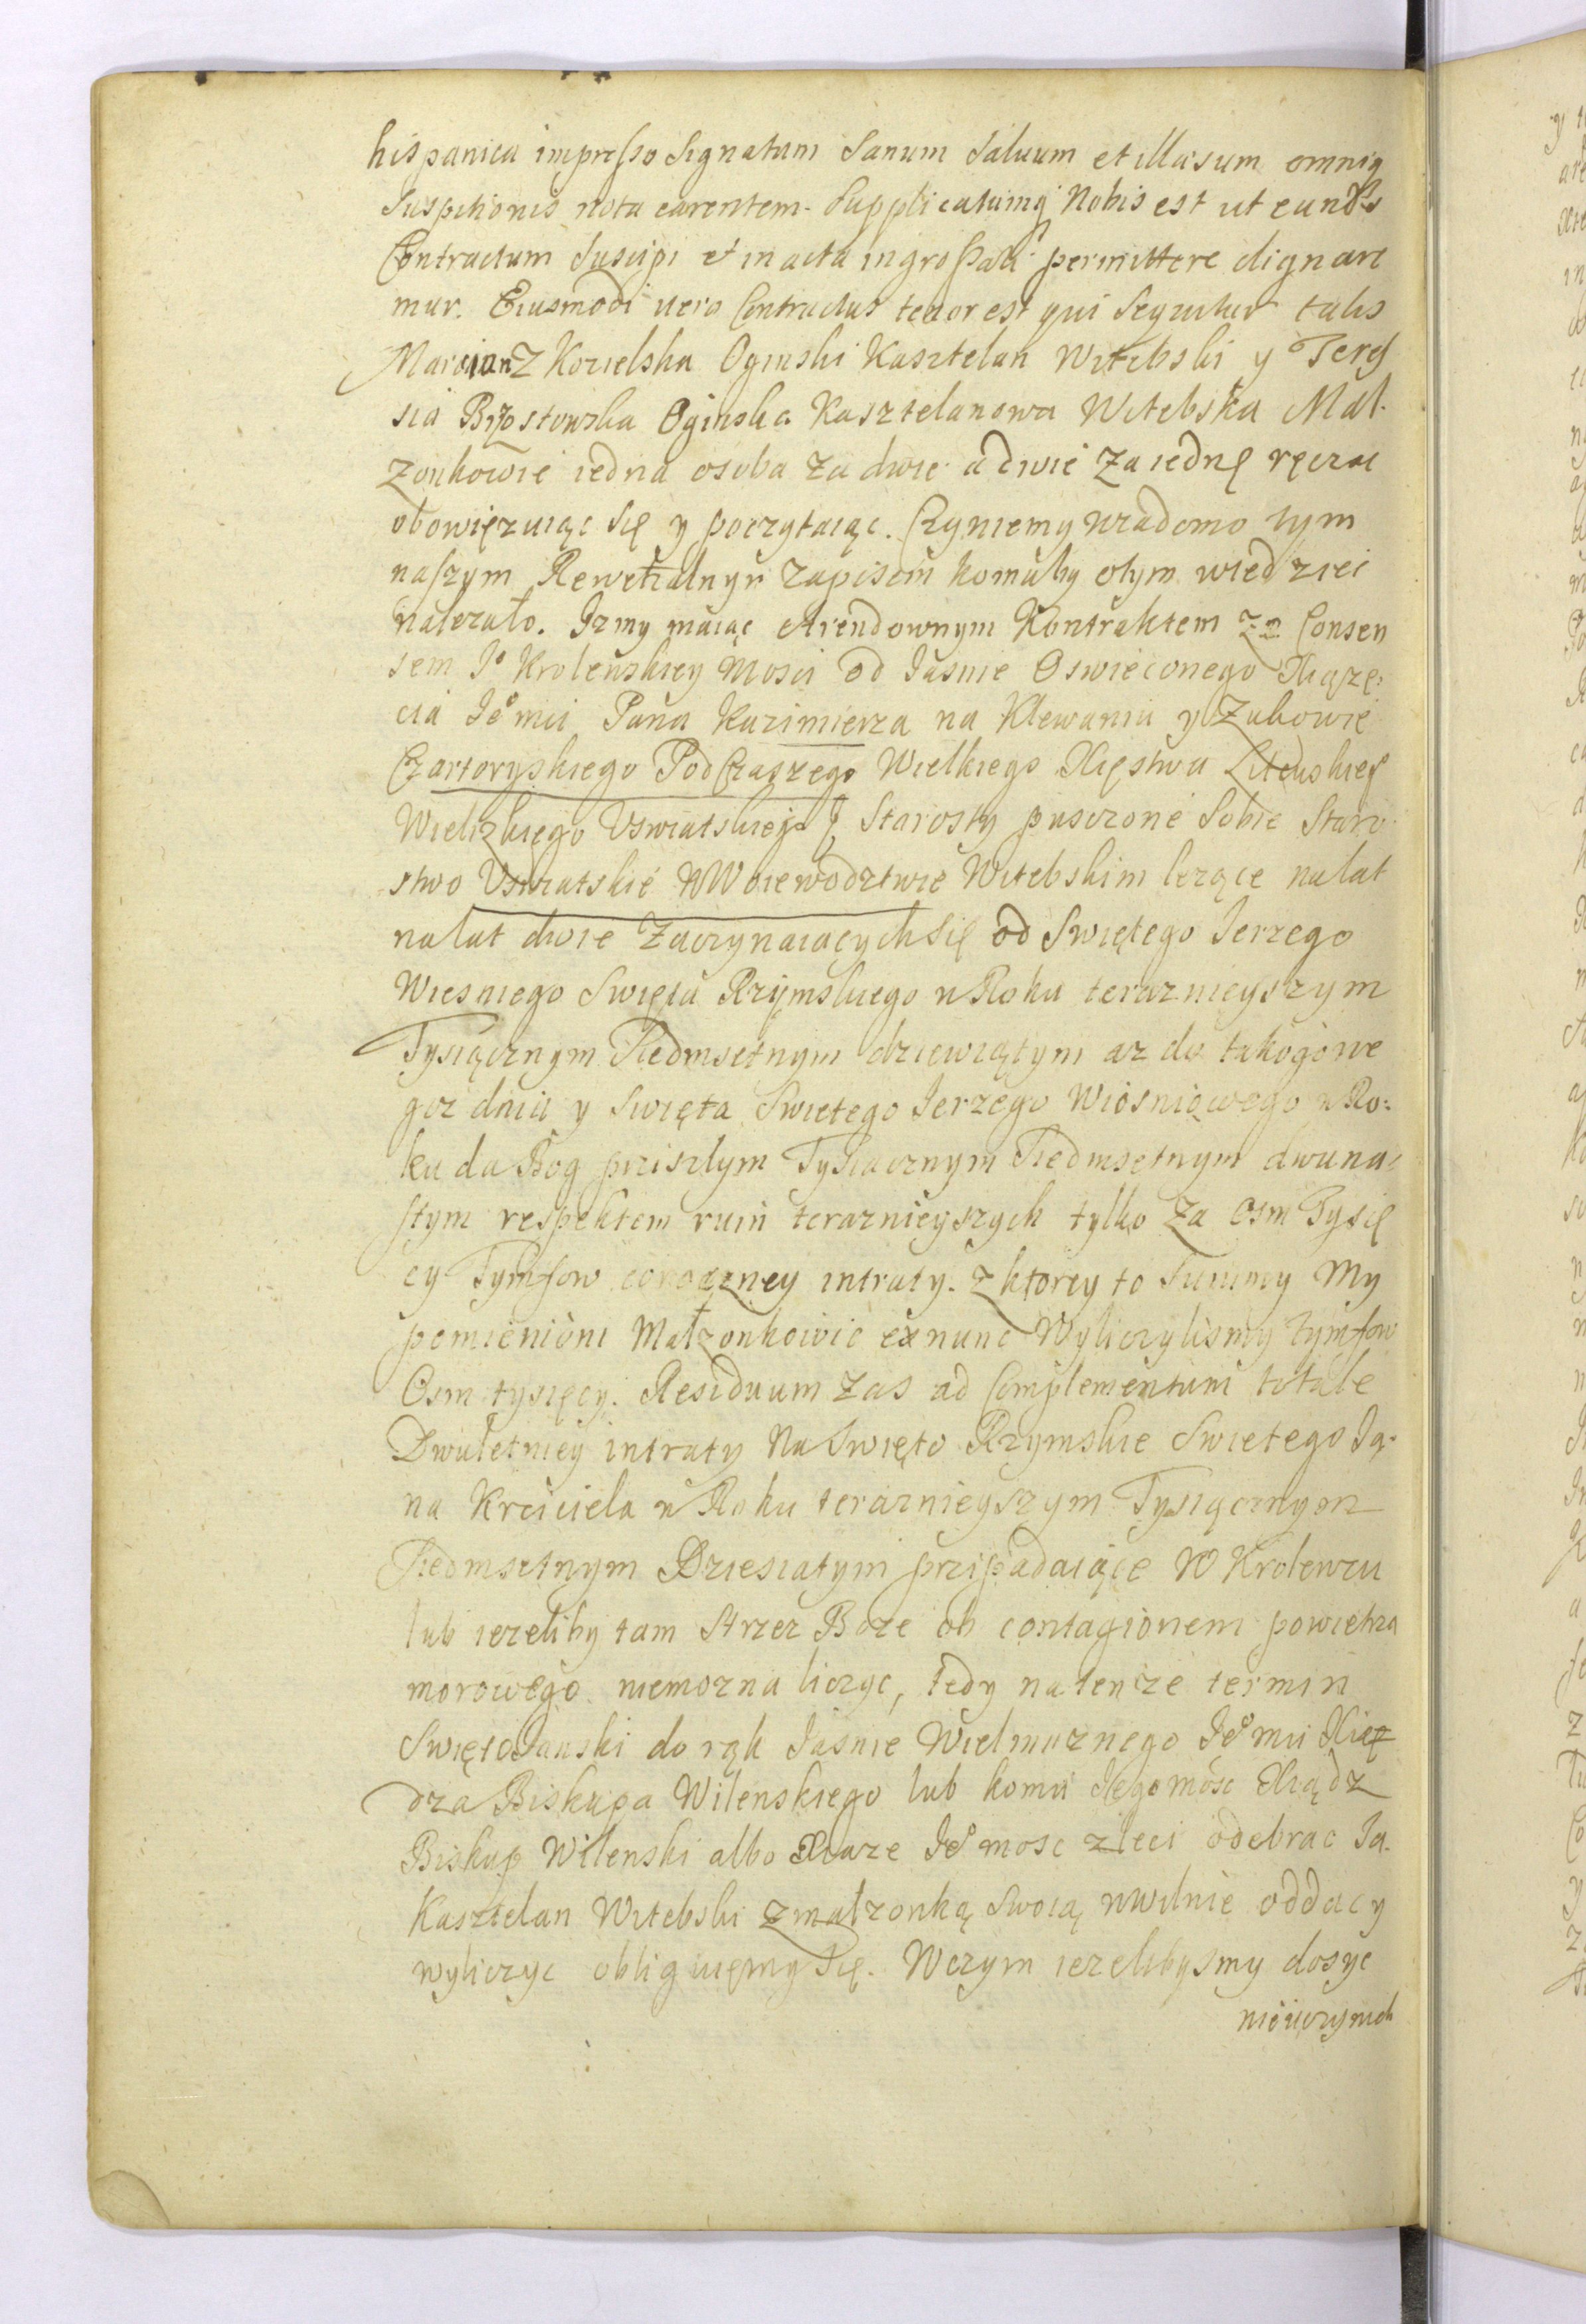 hispanica impresso Signatum Sanum Saluum et illaesum omniq
Suspitionis nota carentem. Supplicatumq Nobis est ut eunde
Contractum Suscipi et in acta ingrossari permittere dignare
mur. Eiusmodi uero Contractus tenor est qui Sequitur talis
Marcian Z Kozielska Oginski Kasztelan Witebski y Teres
sia Brzostowska Oginska Kasztelanowa Witebska Mał.
zonkowie iedna osoba za dwie a dwie za iednę ręcząc
obowięzuiąc się y poczytaiąc. Czyniemy wiadomo tym
naszym Rewersalnym zapisem komuby otym wiedziec
nalezało. Izmy maiąc Arendownym Kontraktem za Consen
sem Jo Krolewskiey Mosci od Jasnie Oswieconego Xiązę:
cia Jeo mci Pana Kazimierza na Klewaniu y Zukowie
Czartoryskiego PodCzaszego Wielkiego Xięstwa Litewskieg
Wieliżkiego Uswiatskiego Starosty pusczone Sobie Staro
stwo Uswiatskie W Woiewodztwie Witebskim lezące nalat
nalat dwie Zaczynaiącychsię od Swiętego Jerzego
Wiesniego Swięta Rzymskiego w Roku teraznieyszym
Tysiącznym Siedmsetnym dziewiątym az do takogowe
goz dnia y Swięta Swietego Jerzego Wiosniowego w Ro:
ku da Bog przisztym Tysiacznym Siedmsetnym dwuna:
stym respektem ruin teraznieyszych tylko za osm Tysię
cy Tymfow coroczney intraty. z ktorey to Summy My
pomienioni Małzonkowie ex nunc Wyliczylismy tymfow
Osm tysięcy. Residuum zas ad Complementum totale
Dwuletniey intraty Na Swięto Rzymskie Swietego Ja.
na Krciciela w Roku teraznieyszym Tysiącznym
Siedmsetnym Dziesiatym przipadaiące W Krolewcu
lub iezeliby tam Strzez Boze ob contagionem powietrza
morowego niemozna liczyc, tedy natenze termin
SwiętoJanski do rąk Jasnie Wielmoznego Jeo mci Xię
dza Biskupa Wilenskiego lub komu Jegomośc Xiądz
Biskup Wilenski albo Xiaze Jeo mosc zleci odebrac Ja.
Kasztelan Witebski zmałzonką Swoią w wilnie oddac y
wyliczyc obliguięmy się. Wczym iezelibysmy dosyc
nieuczynieli